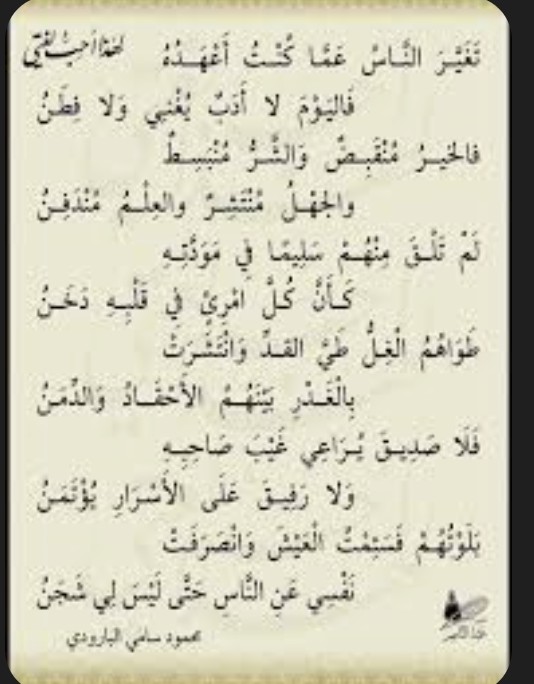 لهذا أحب لغتي
تَغَيَّـرَ النَّـاسُ عَمَّـا كُنْـتُ أَعْهَـدُهُ
فَاليَـوْمَ لا أَدَبٌ يُغْنِي وَلا فِطَـنُ
فالخَيـرُ مُنْقَبِـضٌ وَالشَّـرُّ مُنْبَسِـطٌ
والجَهْـلُ مُنْتَشِـرٌ والعِلْـمُ مُنْدَفِـنُ
لَمْ تَلْـقَ مِنْهُـمْ سَلِيمًـا فِي مَوَدَّتِـهِ
كَـأَنَّ كُـلَّ امْرِئٍ فِي قَلْبِـهِ دَخَـنُ
طَوَاهُمُ الْغِـلُّ طَيَّ القـدِّ وَانْتَشَـرَتْ
بِالْغَـدْرِ بَيْنَهُـمُ الأَحْقَـادُ وَالدِّمَـنُ
فَلَا صَدِيـقَ يُـرَاعِي غَيْبَ صَاحِبِـهِ
وَلا رَفِيـقَ عَلَى الأَسْـرَارِ يُؤْتَمَـنُ
بَلَوْتُهُـمْ فَسَئِمْتُ الْعَيْشَ وَانْصَرَفَـتْ
نَفْسِي عَنِ النَّاسِ حَتَّى لَيْسَ لِي شَجَنُ
محمود سامي البارودي